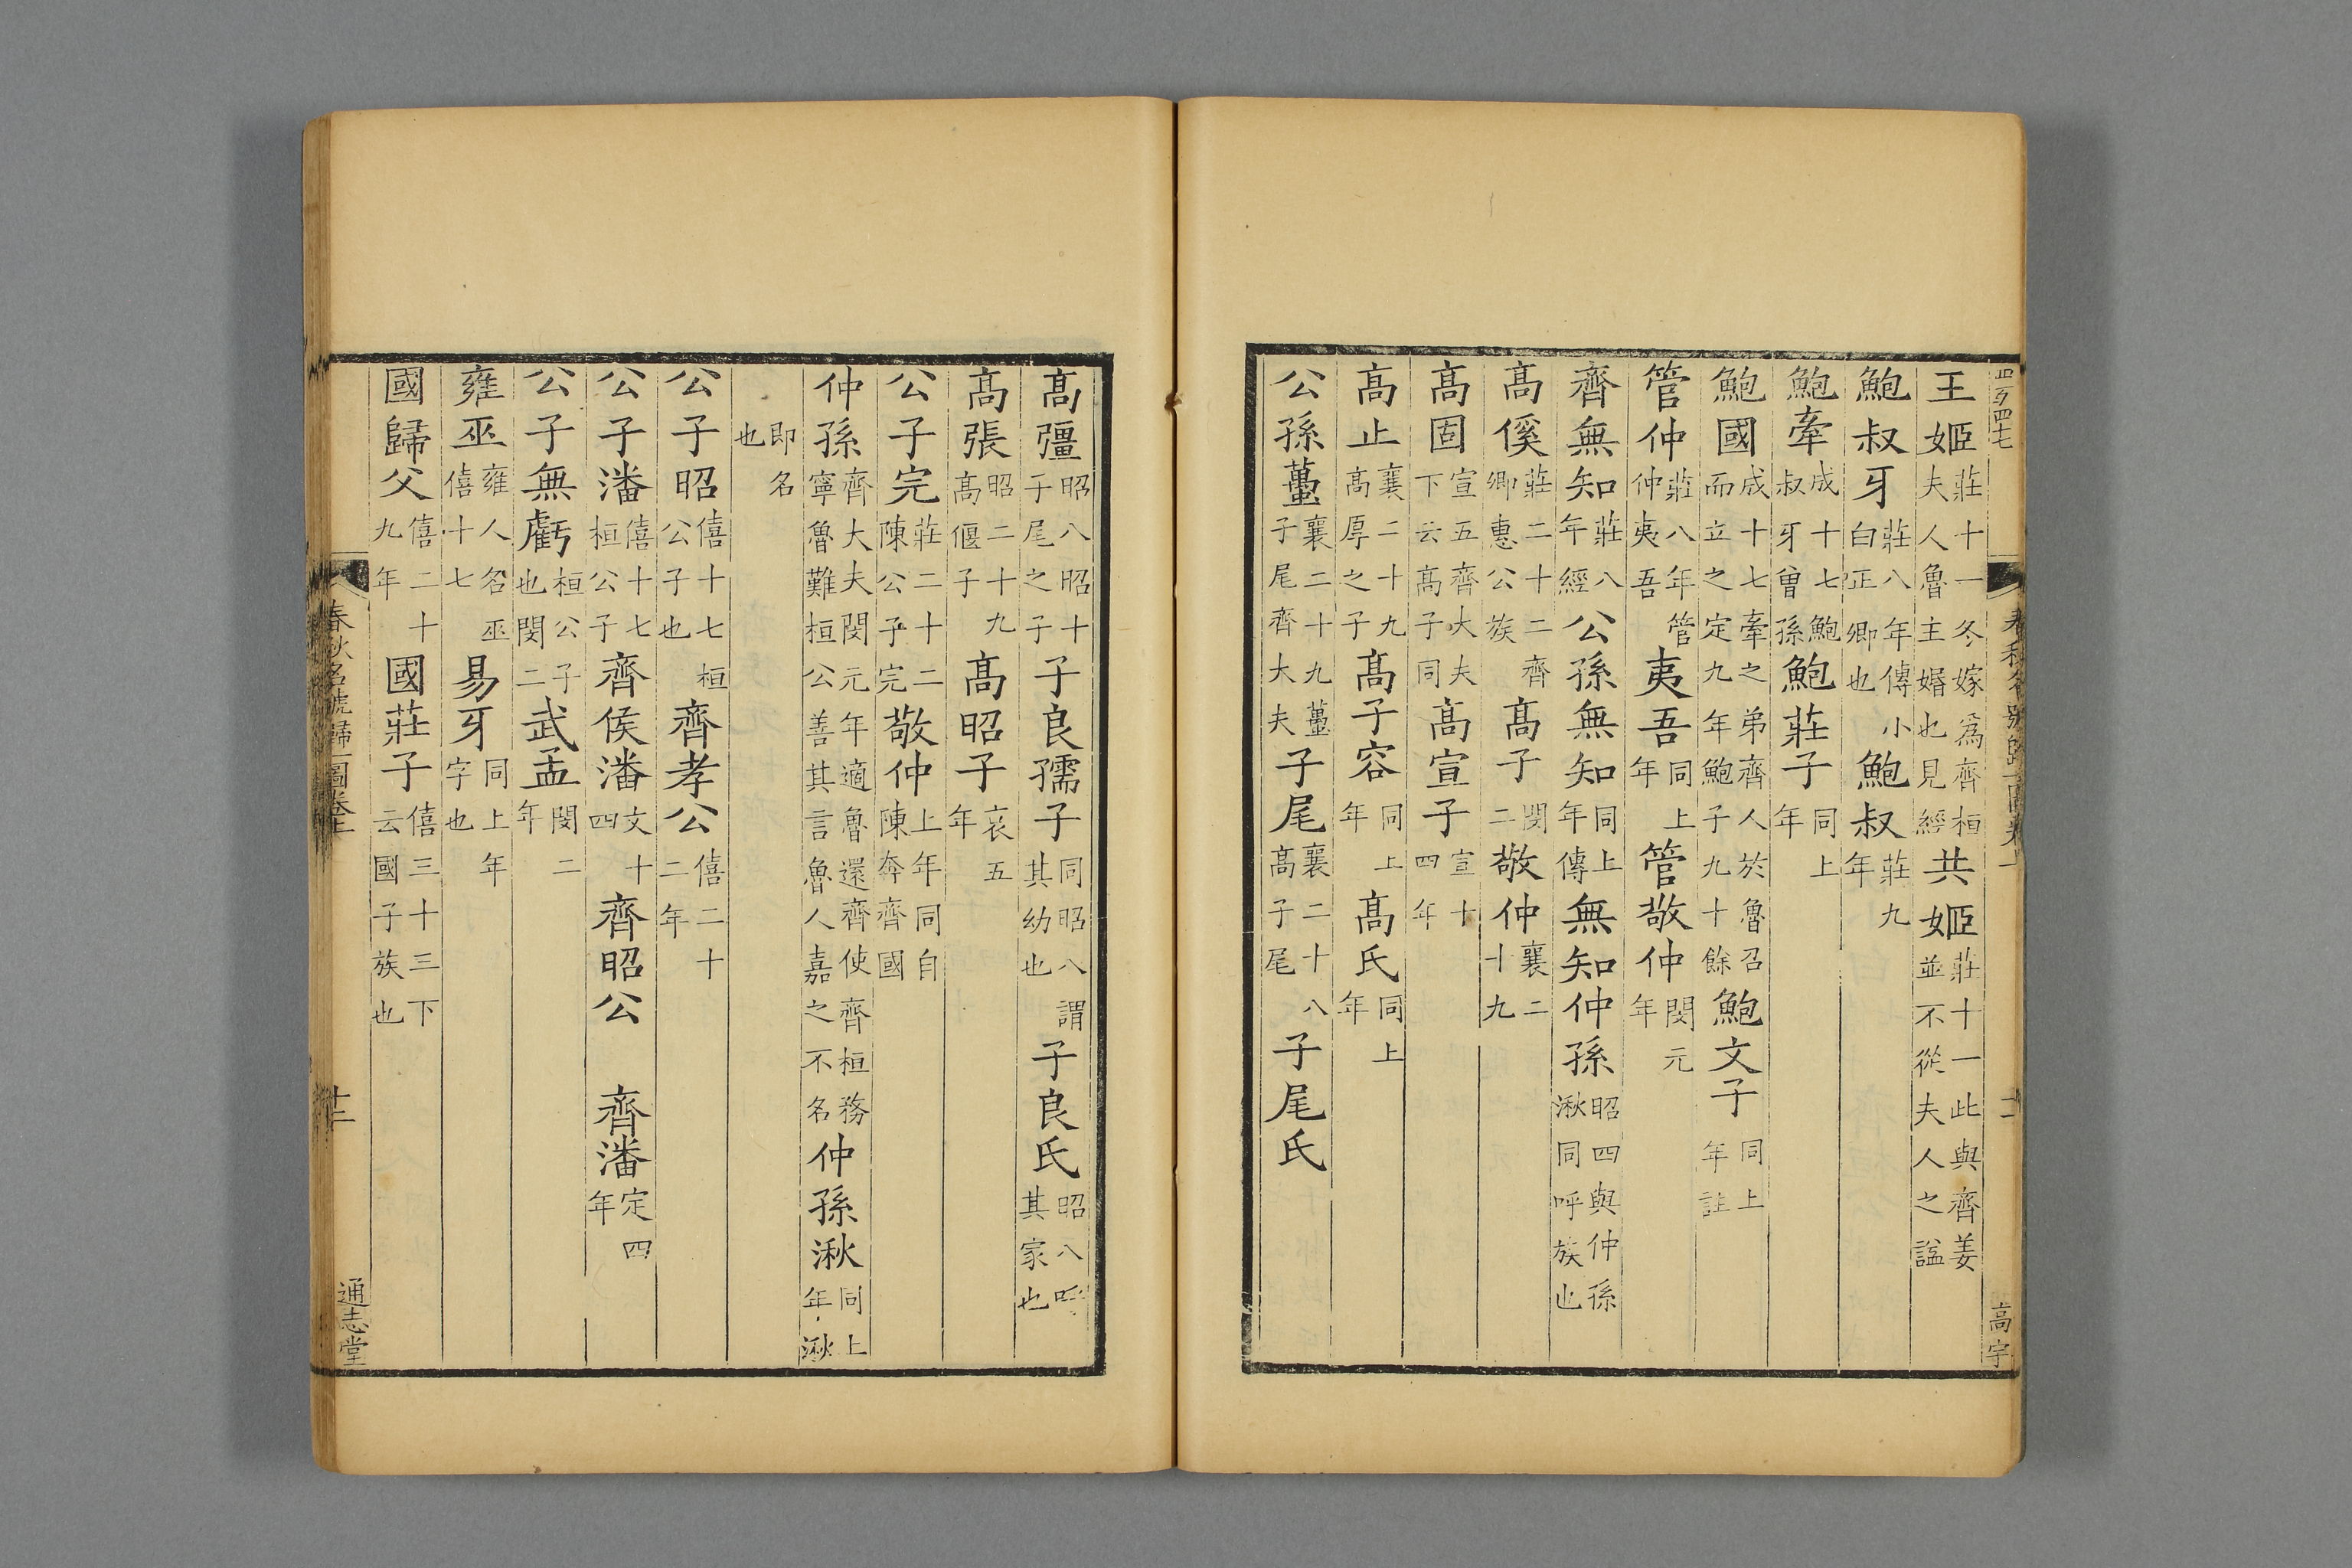 王姬莊十一冬嫁爲齊桓夫人魯主婚也見經共姬莊十一此與齊姜並不從夫人之謚
鮑叔牙莊八年傳小白正卿也鮑叔莊九年
鮑牽成十七鮑叔牙曾孫鮑莊子同上年
鮑國成十七牽之弟齊人於魯召而立之定九年鮑子九十餘鮑文子同上年註
管仲莊八年管仲夷吾夷吾同上年管敬仲閔元年
齊無知莊八年經公孫無知同上年傳無知仲孫昭四與仲孫湫同呼族也
高傒莊二十二齊卿惠公族高子閔二敬仲襄二十九
高固宣五齊大夫下云高子同高宣子宣十四年
高止襄二十九高厚之子高子容同上年高氏同上年
公孫蠆襄二十九蠆子尾齊大夫子尾襄二十八高子尾子尾氏
高彊昭八昭十子尾之子子良孺子同昭八謂其幼也子良氏昭八呼其家也
高張昭二十九高偃子高昭子哀五年
公子完莊二十二陳公子完敬仲上年同自陳奔齊國
仲孫齊大夫閔元年適魯還齊使齊桓務寧魯難桓公善其言魯人嘉之不名仲孫湫同上年湫
即名也
公子昭僖十七桓公子也齊孝公僖二十二年
公子潘僖十七桓公子四齊侯潘文十四齊昭公 齊潘定四年
公子無虧桓公子也閔二武孟閔二年
雍巫雍人名巫僖十七易牙同上年字也
國歸父僖二十九年國莊子僖三十三下云國子族也
春秋名號歸一圖卷上
十二
通志堂